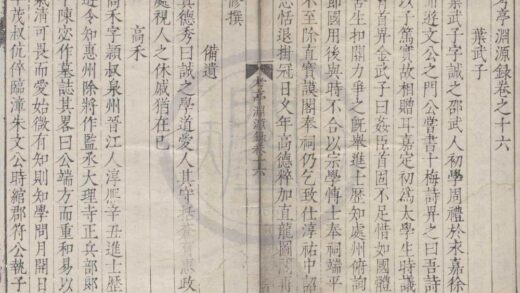 亭淵源錄卷之十六
葉武子
葉武子字誠之邵武人初學周禮於永嘉徐
而遊文公之門公嘗書十梅詩畀之曰吾詩
為篤實故相贈耳嘉定初為太學生時議
首畀金武子曰姦臣首固不足惜如國體
舍生力爭之既舉進士歷知處州府
即國用後與時不合以宗學博士奉祠端平
不至除直寶謨閣奉祠仍乞致仕淳祐中
恬退掛冠日文年高德粹加直龍圖閣
亭淵源錄卷十六
修撰
備遺
真德秀曰誠之學道愛人其守括蒼惠政
處視人之休戚猶在己
高禾
高禾字穎叔泉州晉江人淳熙辛丑進士歷
遂令知惠州除將作監丞大理寺正兵部郎
陳宓作墓誌其略曰公端方而重和易以
清可畏而愛始微有知則知學問月開日
茂叔伉倅臨漳朱文公時綰郡符公執子